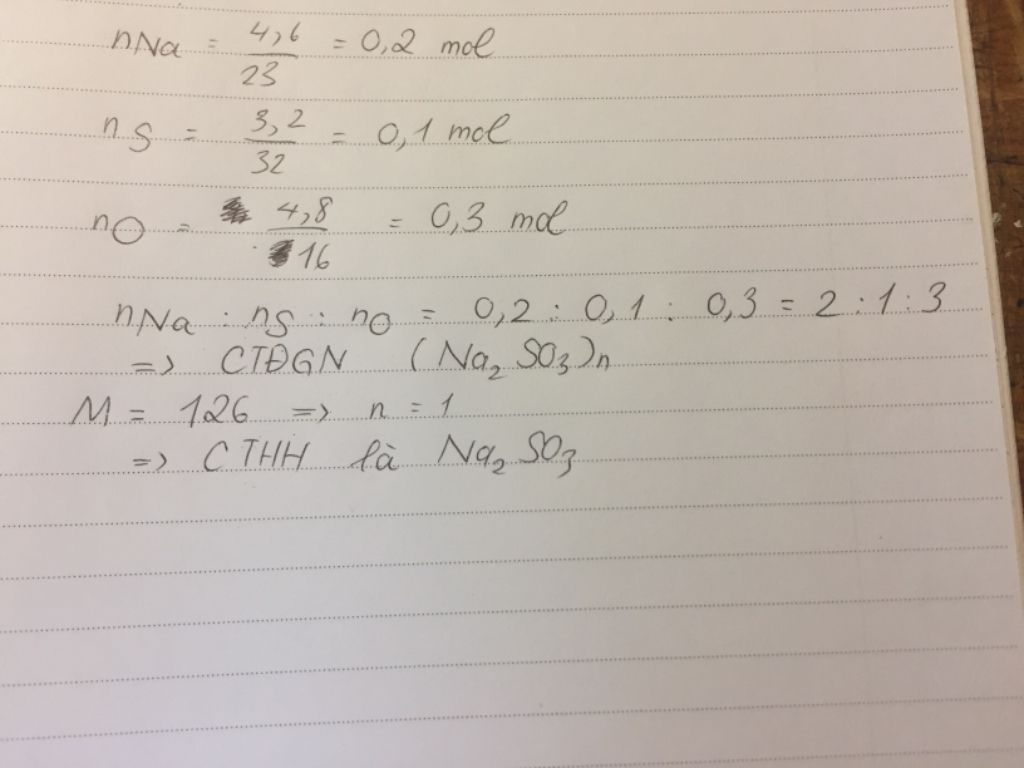 nNa = 4,6/23 = 0,2 mol
nS = 3,2/32 = 0,1 mol
nO = 4,8/16 = 0,3 mol
nNa : nS : nO = 0,2 : 0,1 : 0,3 = 2 : 1 : 3
=> CTĐGN (Na₂SO₃)n
M = 126 => n = 1
=> CTHH là Na₂SO₃